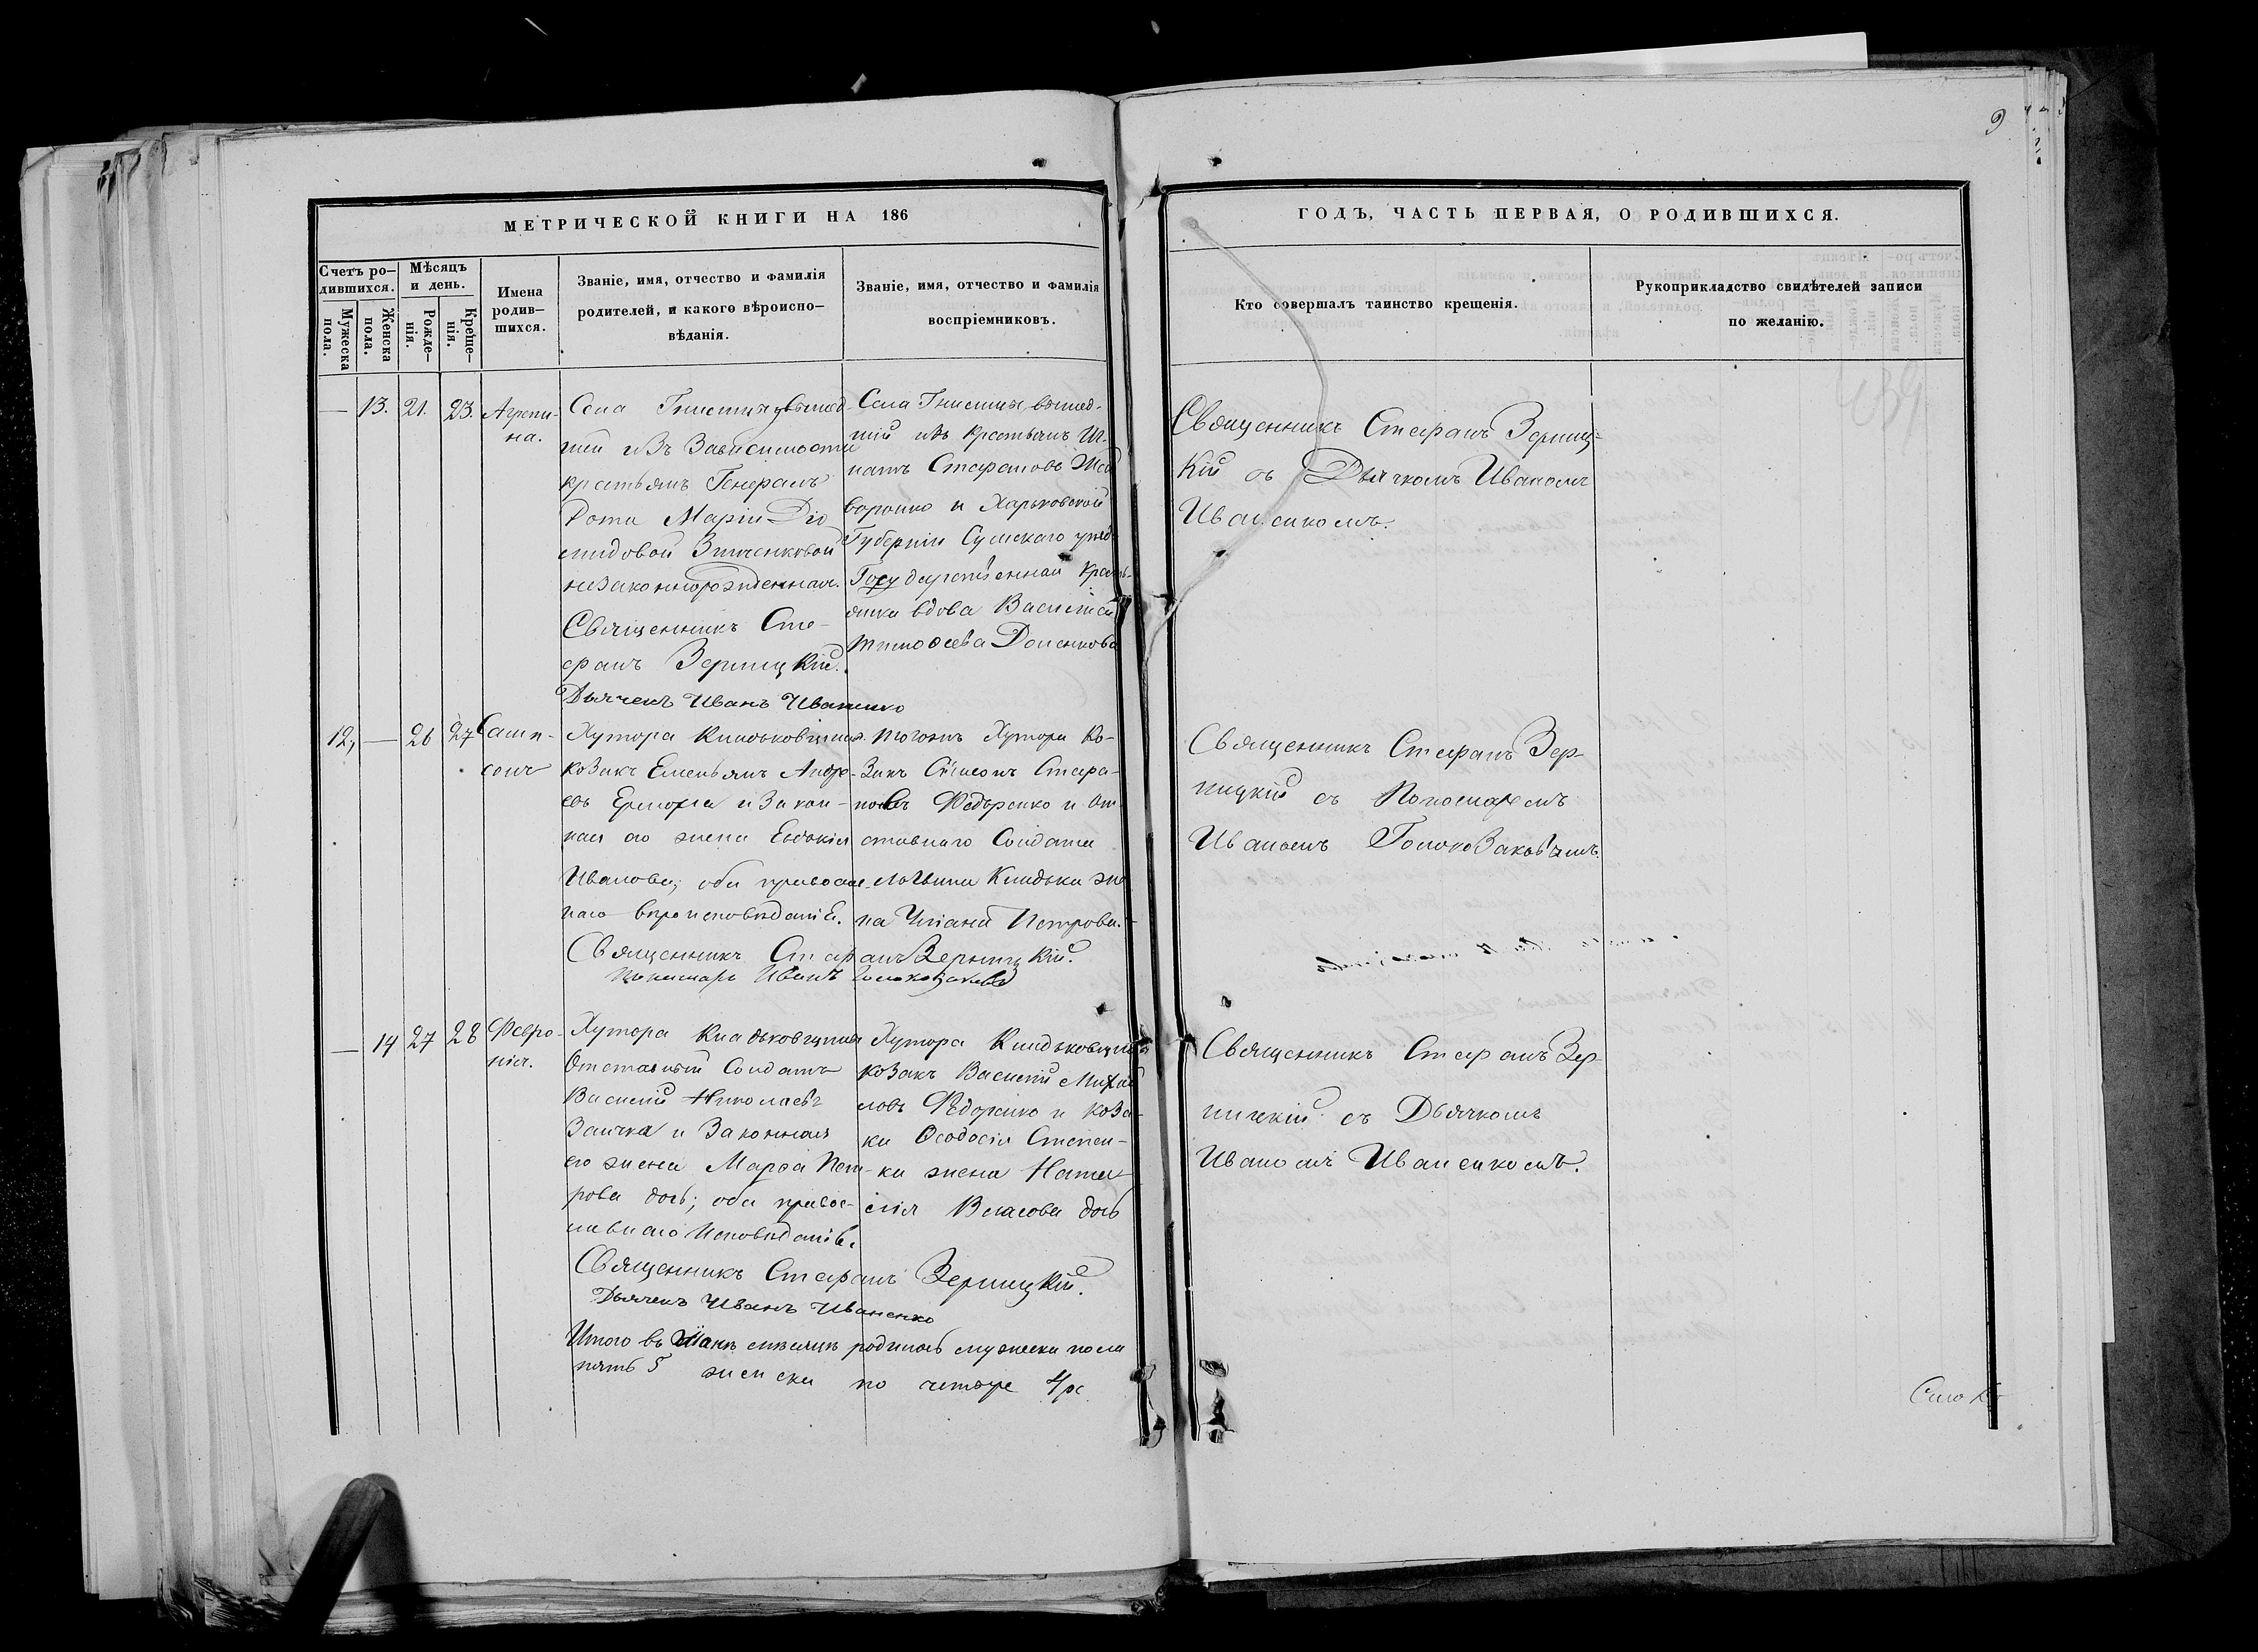 9
МЕТРИЧЕСКОЙ КНИГИ НА 186
ГОДЪ, ЧАСТЬ ПЕРВАЯ, О РОДИВШИХСЯ.
Счетъ ро–
дившихся.
Мужеска
пола.
Женска
пола.
Мѣсяцъ
и день.
Рожде–
нія.
Креще–
нія.
Имена
родив–
шихся.
Званіе, имя, отчество и фамилія
родителей, и какого вѣроиспо–
вѣданія.
Званіе, имя, отчество и фамилія
воспріемниковъ.
Кто совершалъ таинство крещенія.
Рукоприкладство свидѣтелей записи
по желанію.
— 13. 21. 23. Агрепи-
на.
Села
шей изъ Зависимости
крестьянъ Генералъ
Маріи Діо
мидовой Зинченковой
незаконнорожденная.
Священникъ Сте-
фанъ Зерницкій.
Дьячекъ Иванъ Иваненко
Села вышед-
шій изъ крестьянъ Иг-
натъ Стефановъ
воронко и Харьковской
Губерніи Сумскаго уѣзд
Государственная крест-
янка вдова Василиса
Тимоѳеева
Священникъ Стефанъ Зерниц-
кій съ Дьячкомъ Иваномъ
Иваненкомъ.
12, — 26 27 Самп-
сонъ
Хутора
козакъ Емельянъ Андре-
евъ и закон-
ная его жена Евдокія
Иванова; оба правосла-
наго вѣроисповѣданіе.
Священникъ Стефанъ Зерницкій.
Пономарь Иванъ Голоказаковъ
тогожъ Хутора Ко-
закъ Симеонъ Стефа-
новъ Федоренко и от
ставнаго Солдата
же
на Уліанія Петрова.
Священникъ Стефанъ Зер-
ницкій съ Пономаремъ
Иваномъ Голоказаковымъ.
— 14 27 28 Февро-
нія.
Хутора
Отставный Солдатъ
Василій Николаевъ
Заичка и Законная
его жена Марѳа Пет-
рова дочь; оба правос-
лавнаго Исповѣданія.
Священникъ Стефанъ Зерницкій.
Дьячекъ Иванъ Иваненко
Хутора
козакъ Василій Михаи
ловъ Федоренко и коза-
ка Ѳеодосія Степен-
ка жена Ната
лія Власова дочь
Священникъ Стефанъ Зер-
ницкій съ Дьячкомъ
Иваномъ Иваненкомъ.
Итого въ Іюнѣ мѣсяцѣ родилось мужеска пола
пять 5 женска по четыре 4ре